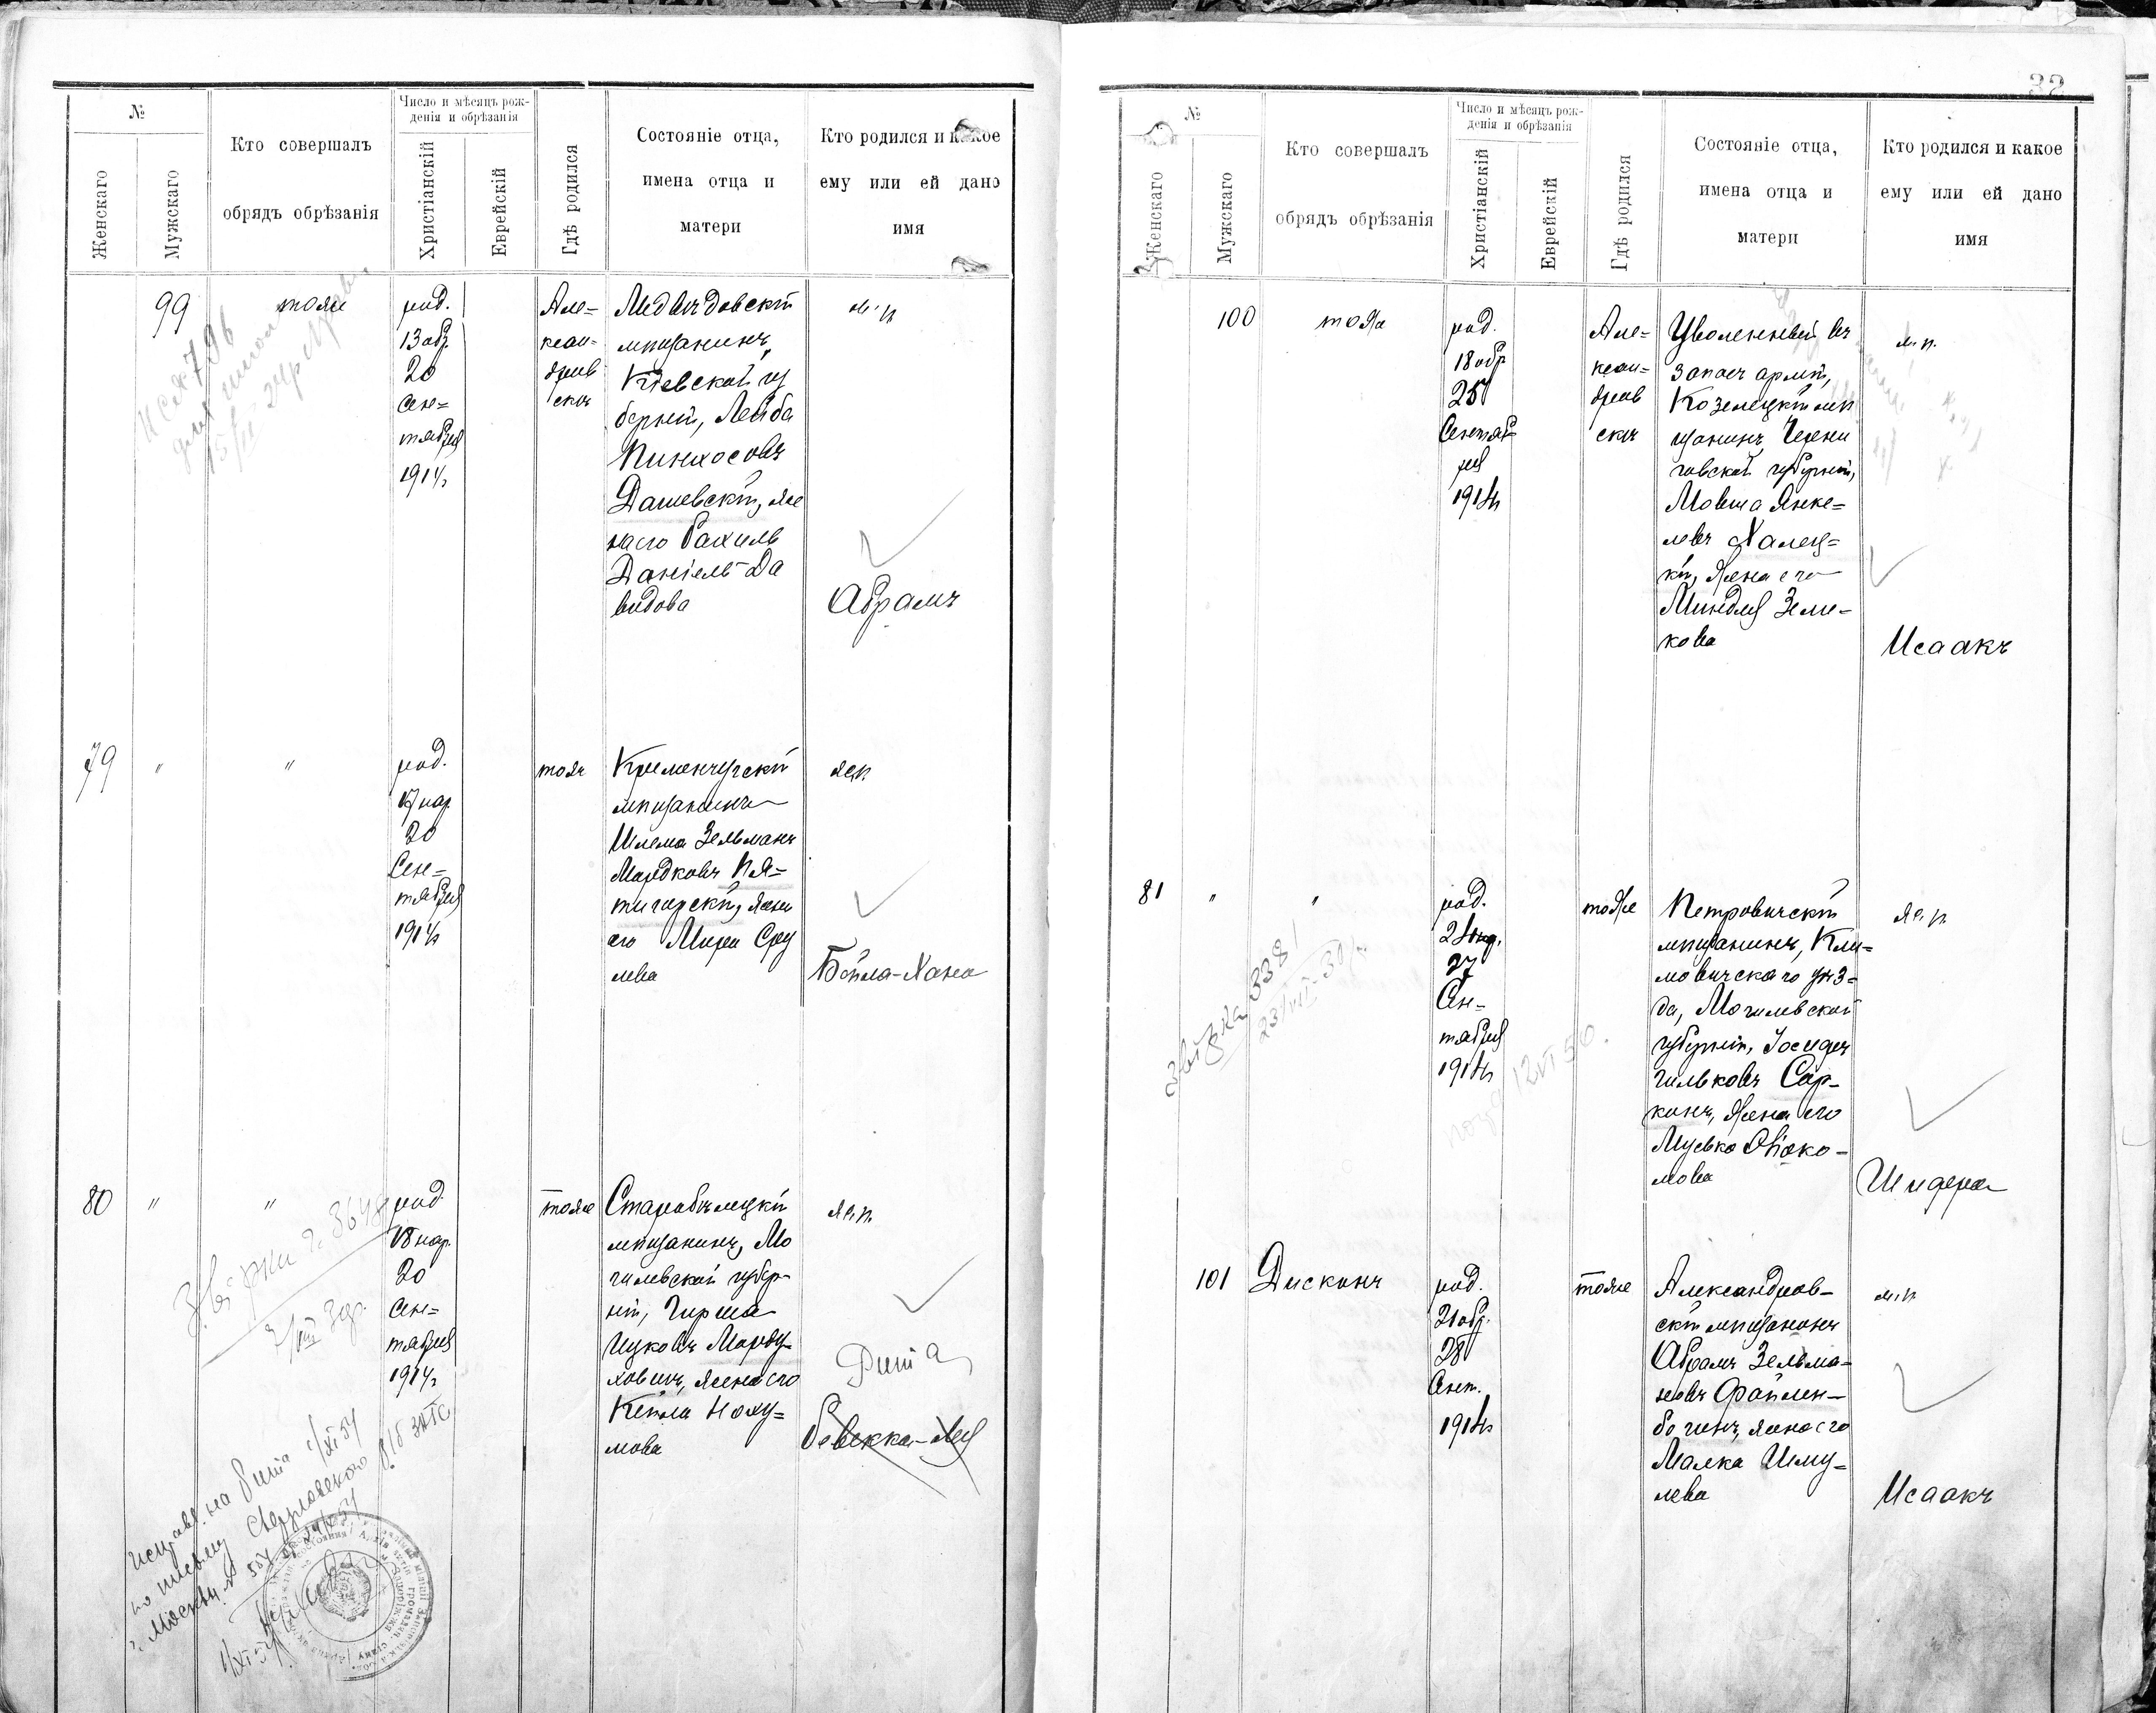 №
Женскаго
Мужскаго
Кто совершалъ
обрядъ обрѣзанія
Число и мѣсяцъ рож-
денія и обрѣзанія
Христіанскій
Еврейскій
Гдѣ родился
Состояніе отца,
имена отца и
матери
Кто родился и какое
ему или ей дано
имя
99
тоже
род.
13 обр.
20
Сен=
тября
1914 г
Але=
ксан=
дров
скъ
мѣщанинъ,
Кіевской гу
берніи, Лейба
Пинхосовъ
Дашевскій, же
на его Рахиль
Даніелъ-Да
видова
м. п.
Абрамъ
79
"
"
род.
17 нар.
20
Сен=
тября
1914 г
тоже
Кременчугскій
мѣщанинъ
Шлема Зельманъ
Мордковъ Пя=
тигорскій, жена
его Мира Сру
лева
ж. п.
Бейла-Хана
80
"
"
род.
18 нар.
20
Сен=
тября
1914 г
тоже
Старобѣлецкій
мѣщанинъ, Мо
гилевской губер
ніи, Гирша
Ицковъ Морду-
ховичъ, жена его
Кейла Наху=
мова
ж. п.
Рита
Ревекка-Лея
исправ. на Рита
по письму
32
№
Женскаго
Мужскаго
Кто совершалъ
обрядъ обрѣзанія
Число и мѣсяцъ рож-
денія и обрѣзанія
Христіанскій
Еврейскій
Гдѣ родился
Состояніе отца,
имена отца и
матери
Кто родился и какое
ему или ей дано
имя
100
тоже
род.
18 обр.
25
Сентяб
ря
1914 г
Але=
ксан=
дров
скъ
Уволенный въ
запасъ арміи,
Козелецкій мѣ
щанинъ Черни
говской губерніи,
Мовша Янке=
левъ Халец=
кій, жена его
Миндля Зели-
кова
м. п.
Исаакъ
81
"
"
род.
21 нар.
27
Сен=
тября
1914 г
тоже
Петровичскій
мѣщанинъ, Кли=
мовичскаго уѣз=
да, Могилевской
губерніи,
жена его
ж. п.
Шифра
101
Дискинъ
род.
21 обр.
28
Сент.
1914 г
тоже
Александров-
скій мѣщанинъ
Абрамъ Зельма-
новъ Файлен-
богенъ, жена его
Малка Шму-
лева
м. п.
Исаакъ